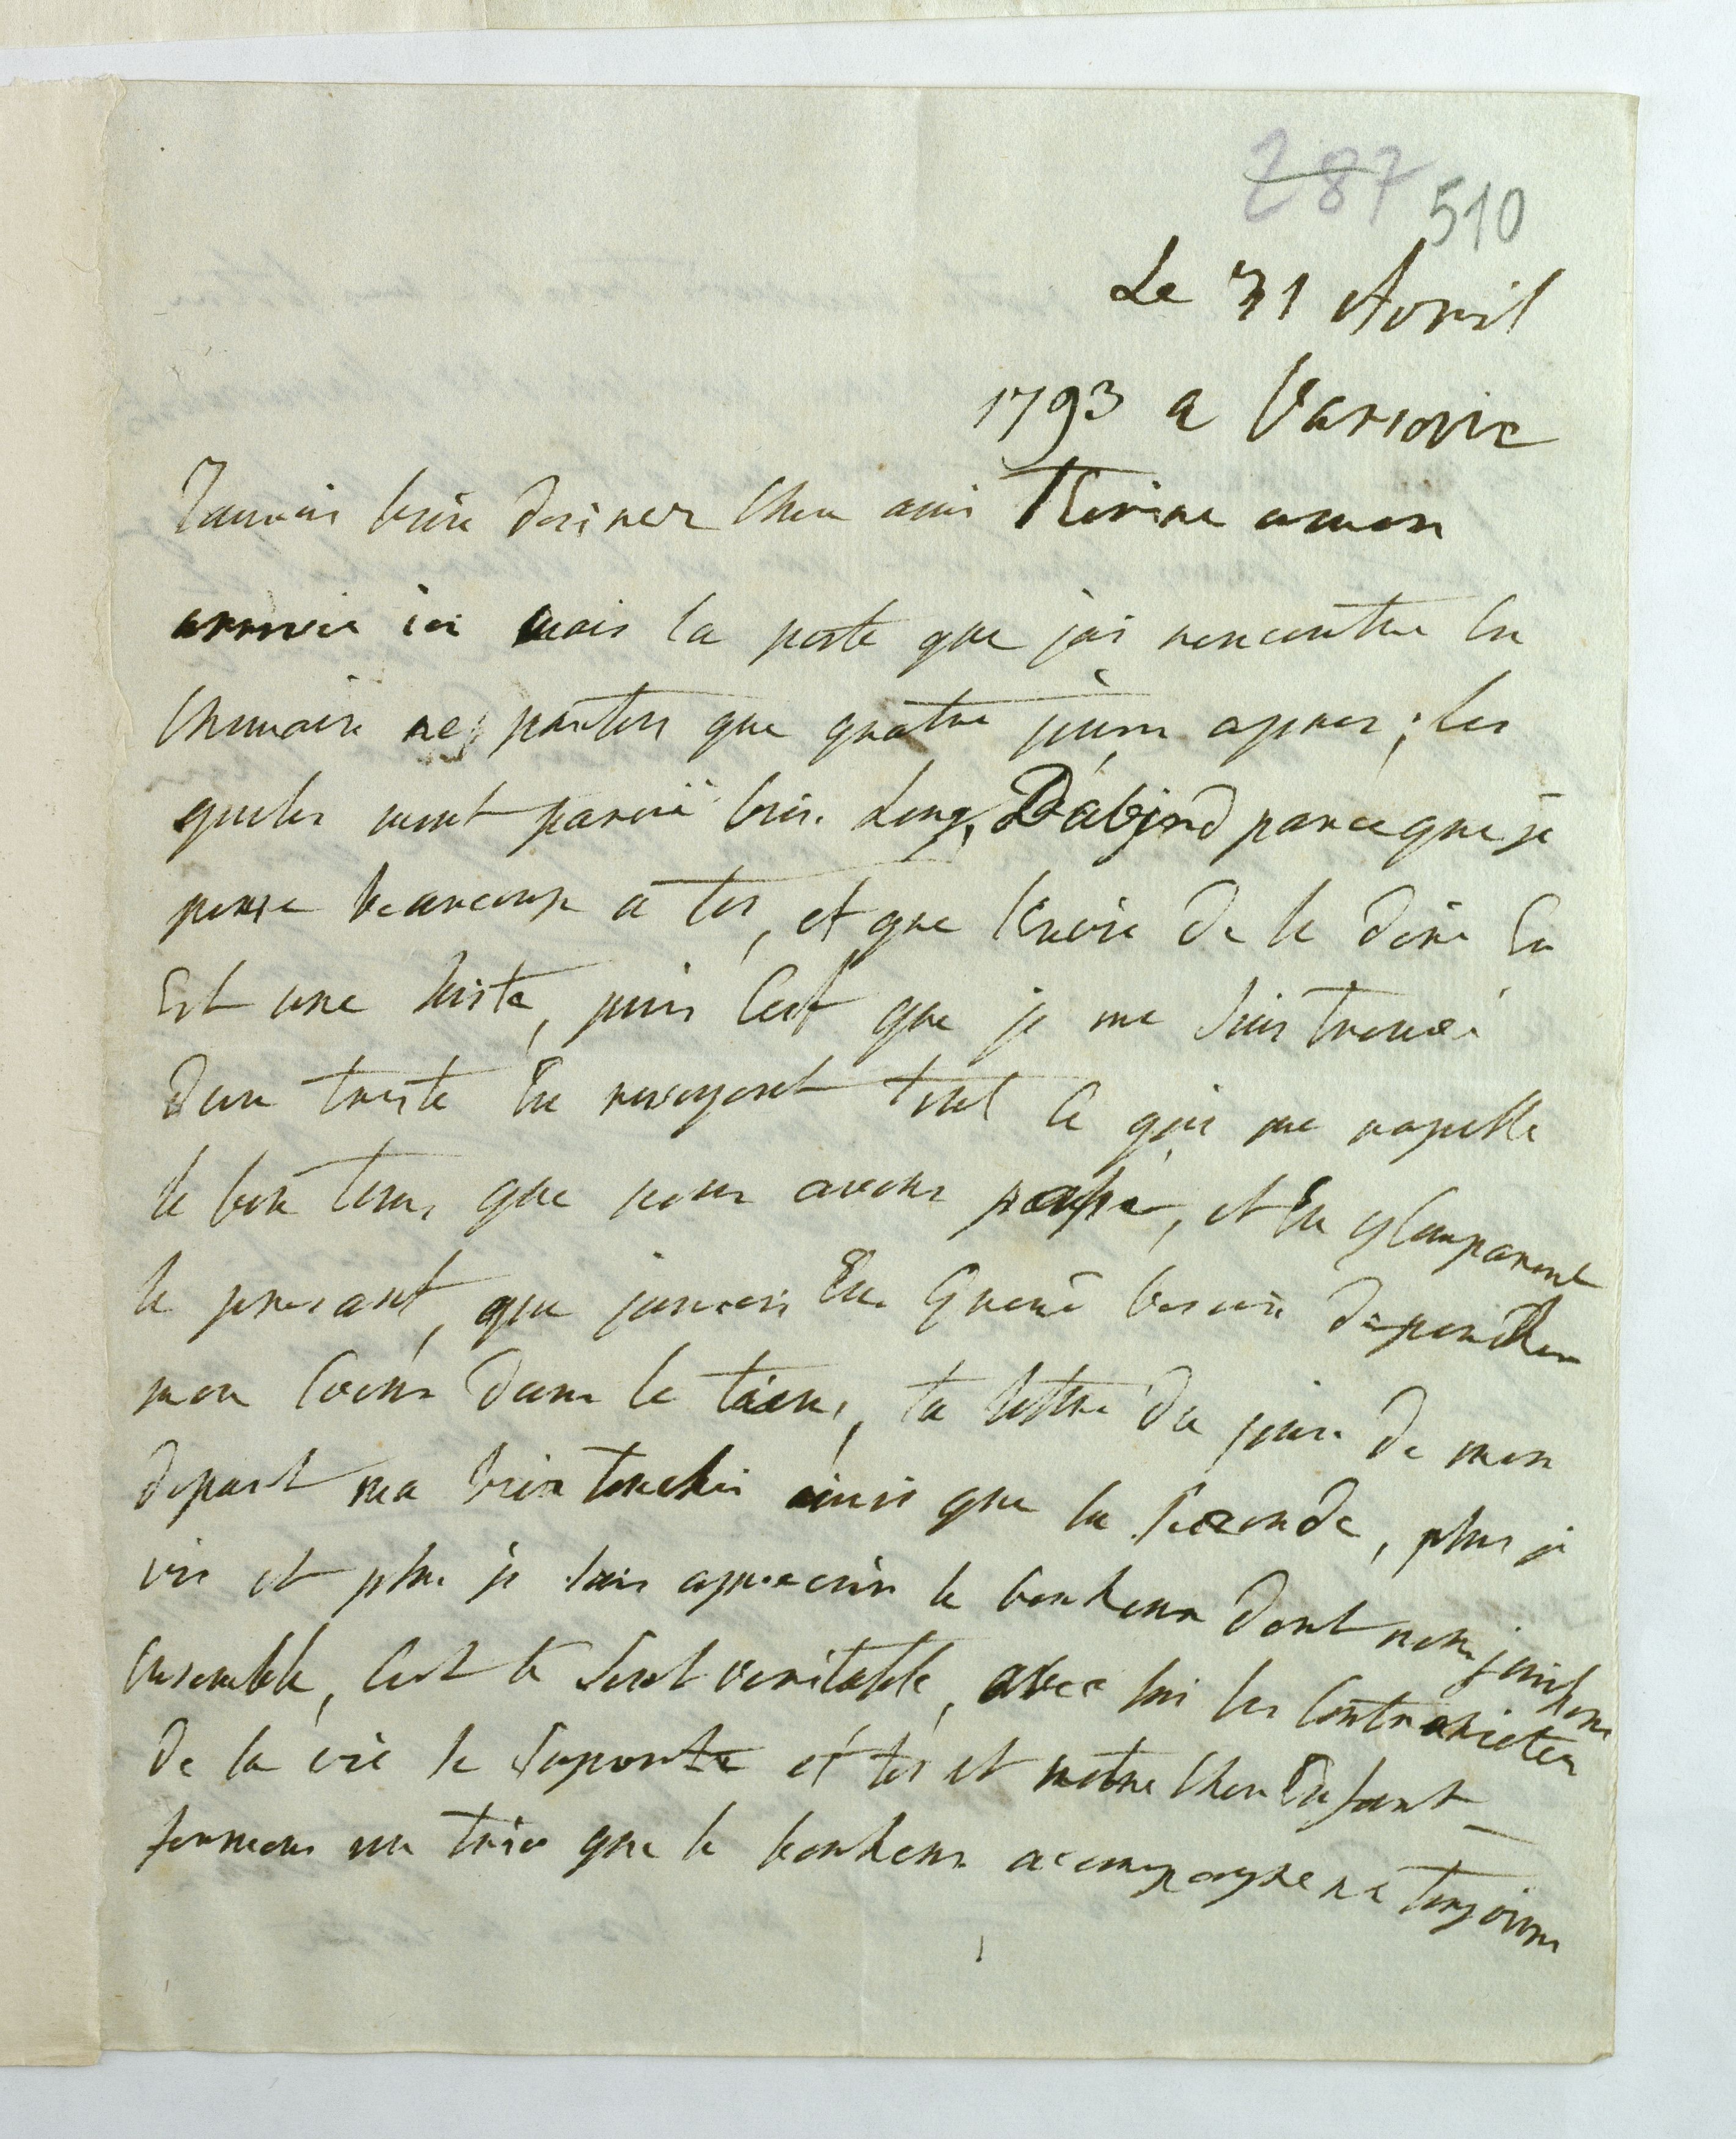 287 510
Le 31 Avril
1793 a Varsovie
Jaurais bien desirer cher ami t'ecrire amon
arrivée ici mais la poste que jai rencontre en
chemain ne partoit que quatre jours apres ; les
queles mont paruë bien Long, Dabord parceque je
pense beaucoup a toi, et que l'envie de te dire En
Est une suite, puis Cest que je me suis trouvé
dun triste En revoyent tout ce qui me rapelle
le bon tems que nous avons passé, et En y Comparent
le presant, que jamais En besoin depancher
mon Coeur dans le tien, ta lettre du jour de mon
depart ma bien touchée ainsi que la seconde, plus je
vis et plus je sais aprecier le bonheur dont nous jouissons
Ensemble, Cest le seul veritable, avec lui les Contrarietes
de la vie se suporte et toi et notre cher Enfant
formons un trio que le bonheur acompagnera toujours